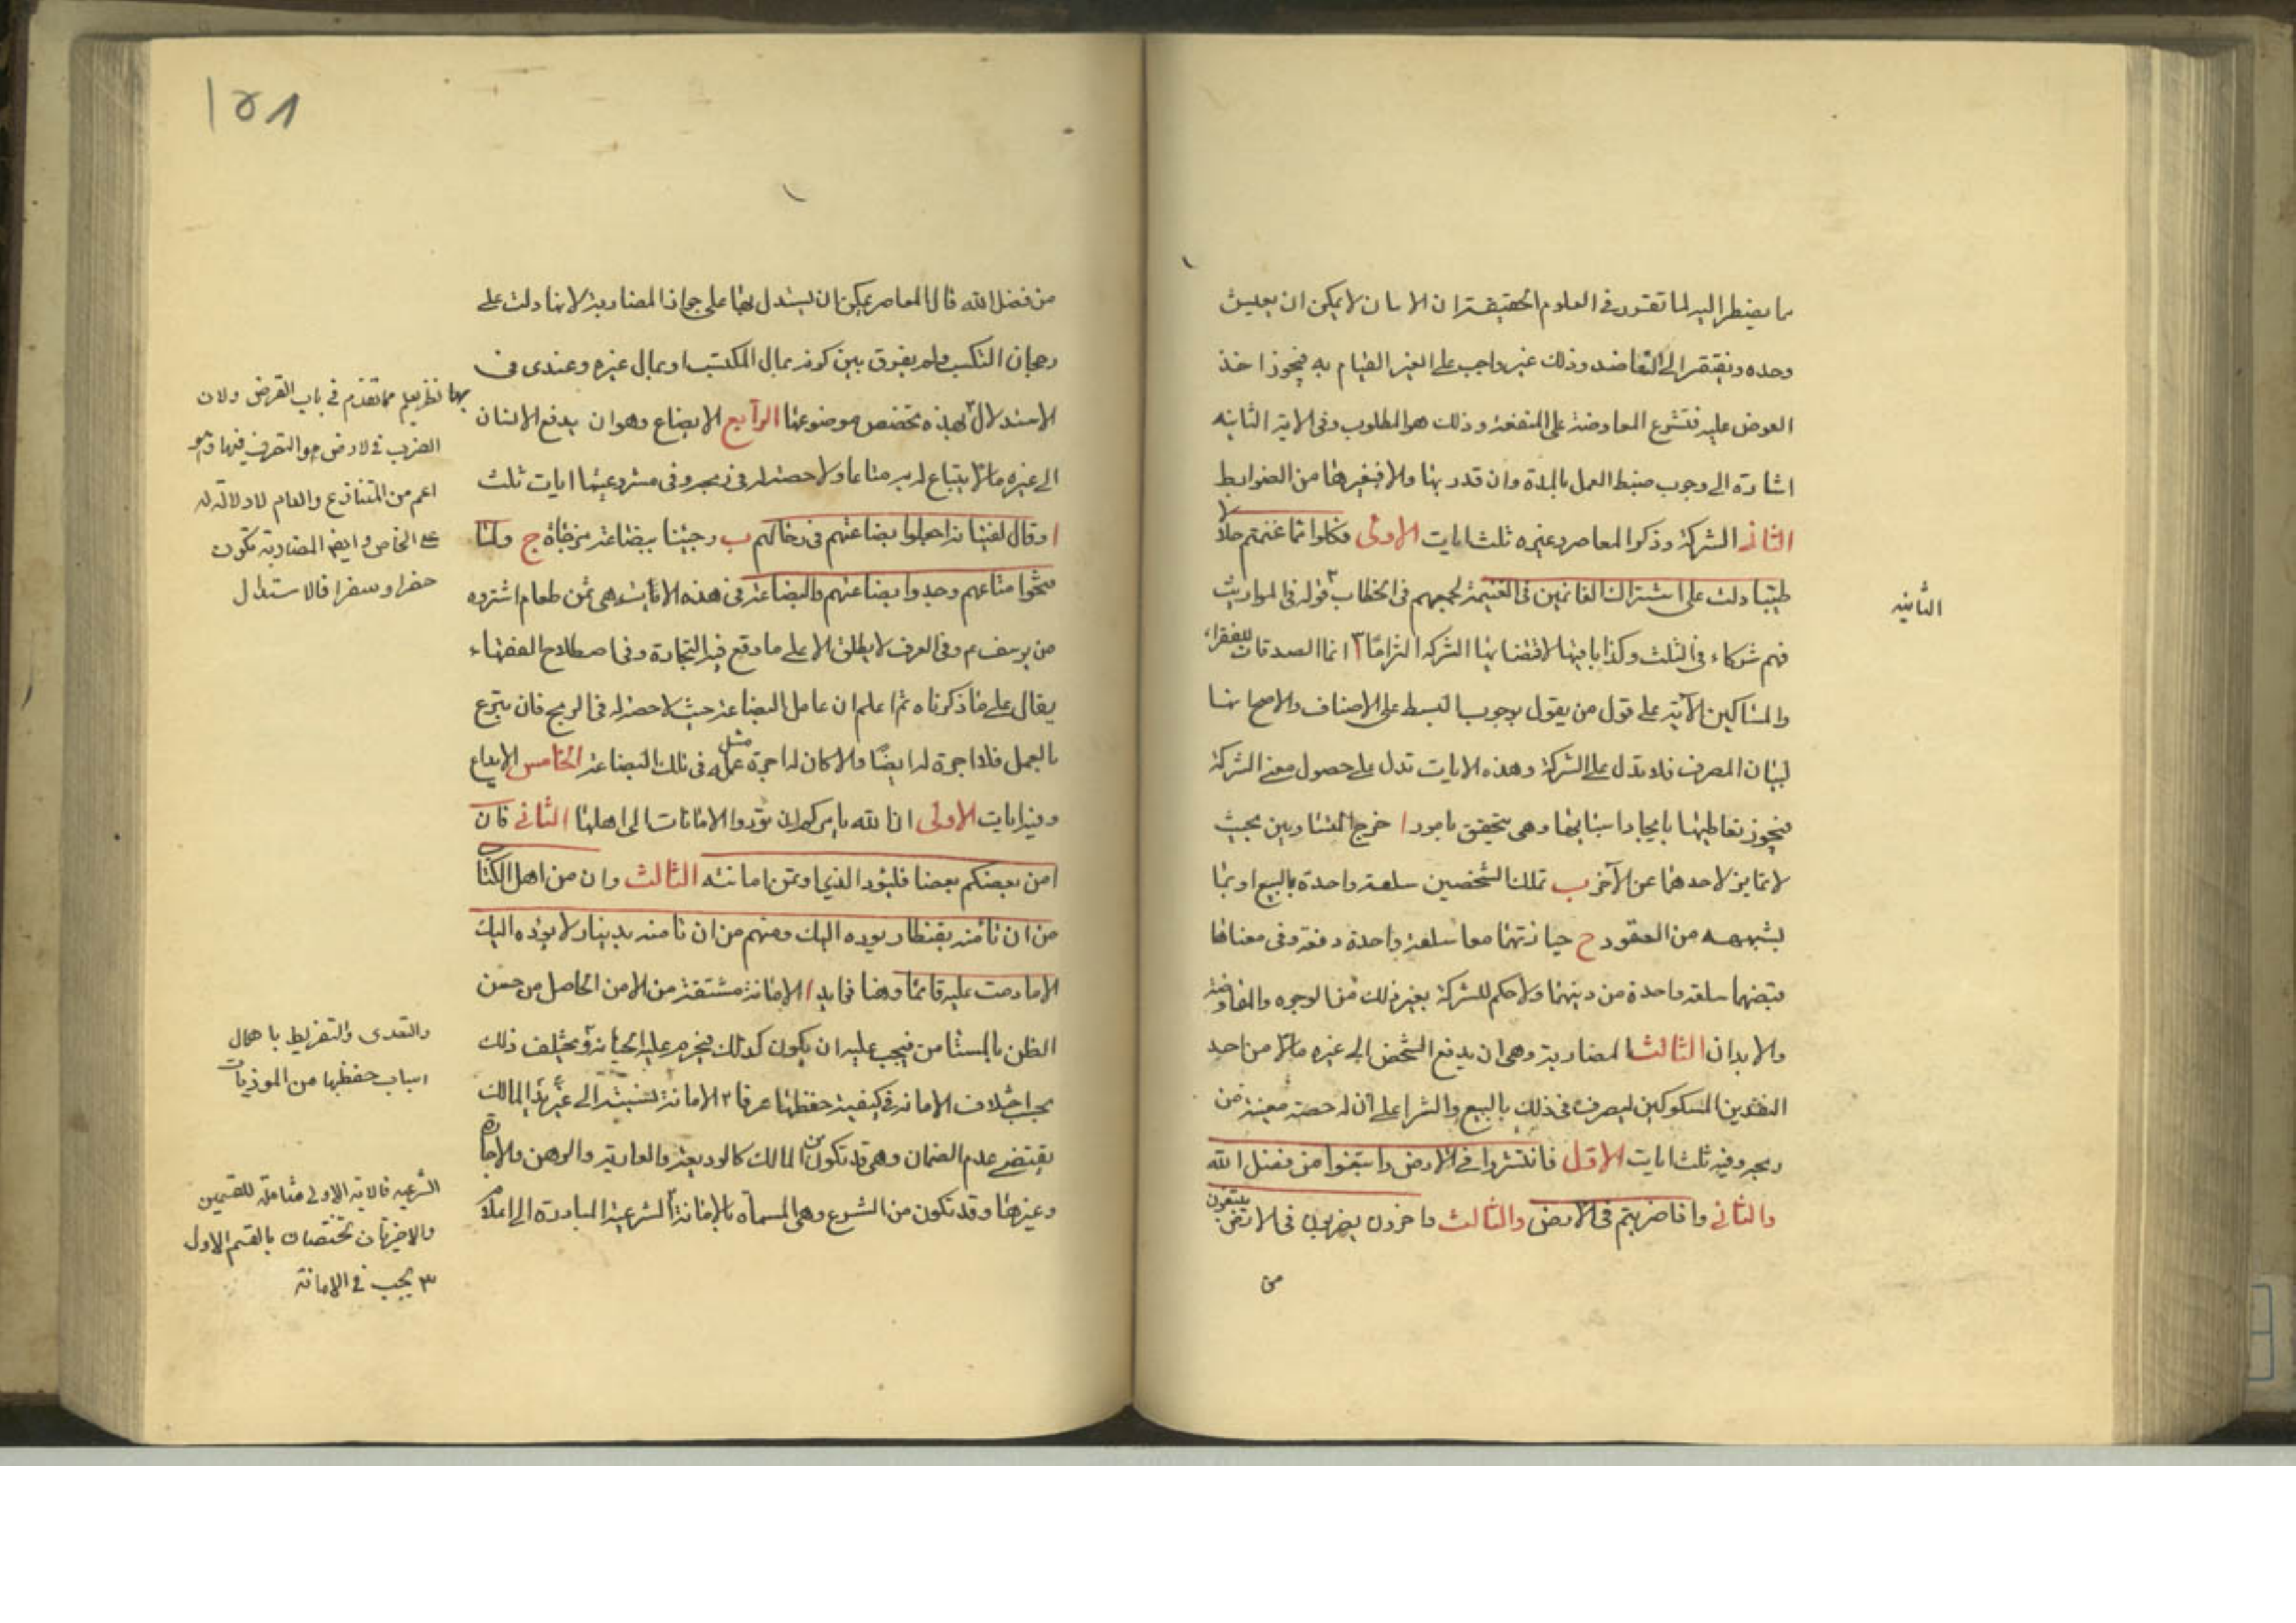 مما يضطر اليه لما تقرر فى العلوم الحقيقة ان الانسان لا يمكن ان يعيش
وحده ويفتقر الى التعاضد وذلك غير واجب على الغير القيام به فيجوز اخذ
العوض عليه فتشرع المعاوضة على المنفعة وذلك هو المطلوب وفى الاية الثانيه
اشارة الى وجوب ضبط العمل بالمدة وان قدر بها والا فبغيرها من الضوابط
الثانى الشركة وذكر المعاصر وغيره ثلث ايات الاولى فكلوا مما غنمتم حلالا
طيبا دلت على اشتراك الغانمين فى الغنيمة لجمعهم فى الخطاب ٢ قوله فى المواريث
الثانيه
فهم شركاء فى الثلث وكذا باقيها لاقتضائها الشركة التزاما ٣ انما الصدقات للفقراء
والمساكين الآية على قول من يقول بوجوب البسط على الاصناف والاصح انها
لبيان المصرف فلا تدل على الشركة وهذه الايات تدل على حصول معنى الشركة
فيجوز تعاطيها بايجاد اسبابها وهى يتحقق بامور ا خرج المتساويين بحيث
لا تمايز لاحدهما عن الآخر ب تملك الشخصين سلعة واحدة بالبيع او بما
يشبهه من العقود ح حيازتهما معا سلعة واحدة دفعة وفى معناها
قبضهما سلعة واحدة من دينهما ولا حكم للشركة بغير ذلك من الوجوه والمفاوضة
والابدان الثالث المضاربة وهى ان يدفع الشخص الى غيره مالا من احد
النقدين المسكوكين ليصرف فى ذلك بالبيع والشرا على ان له حصة معينة من
ربحه وفيه ثلث ايات الاول فانتشروا فى الارض وابتغوا من فضل الله
والثانى واذا ضربتم فى الارض والثالث واخرون يضربون فى الارض يبتغون
من
١٥٨
من فضل الله قال المعاصر يمكن ان يستدل بها على جواز المضاربة لانها دلت على
رجحان التكسب ولم يفرق بين كونه بمال المكتسب او بمال غيره وعندى فى
الاستدلال بهذه تخصص موضوعها الرابع الابضاع وهو ان يدفع الانسان
بها نظر يعلم مما تقدم فى باب القرض ولان
الضرب فى الارض هو التصرف فيها وهو
اعم من المتنازع والعام لا دلالة له
على الخاص وايضا المضاربة تكون
حضرا وسفرا فالاستدلال
الى غيره مالا يبتاع له به متاعا ولا حصة له فى ربحه وفى مشروعيتها ايات ثلث
ا وقال لفتيانه اجعلوا بضاعتهم فى رحالهم ب وجئنا ببضاعة مزجاة ج ولما
فتحوا متاعهم وجدوا بضاعتهم والبضاعة فى هذه الآيات هى ثمن طعام اشتروه
من يوسف ع م وفى العرف لا يطلق الا على ما وقع فيه التجارة وفى اصطلاح الفقهاء
يقال على ما ذكرناه ثم اعلم ان عامل البضاعة حيث لا حصة له فى الربح فان تبرع
بالعمل فلا اجرة له ايضا والا كان له اجرة مثل عمله فى تلك البضاعة الخامس الايداع
وفيه ايات الاولى ان الله يامركم ان تؤدوا الامانات الى اهلها الثانى فان
امن بعضكم بعضا فليؤد الذى اؤتمن امانته الثالث وان من اهل الكتاب
من ان تأمنه بقنطار يوده اليك ومنهم من ان تامنه بدينار لا يؤده اليك
الا ما دمت عليه قائما وهنا فوايد ا الامانة مشتقة من الامن الحاصل من حسن
الظن بالمستامن فيجب عليه ان يكون كذلك فيحرم عليه الخيانة ويختلف ذلك
والتعدى والتفريط باهمال
اسباب حفظها من الموذيات
بحسب اختلاف الامانة فى كيفية حفظها عرفا ٢ الامانة لنسبتها الى غير يد المالك
يقتضى عدم الضمان وهى قد تكون من المالك كالوديعة والعارية والرهن والاجارة
وغيرها وقد تكون من الشرع وهى المسماة بالامانة الشرعية المبادرة الى اعلام
الشرعيه فالاية الاولى شاملة للقسمين
والاخيرتان تختصان بالقسم الاول
٣ يجب فى الامانة